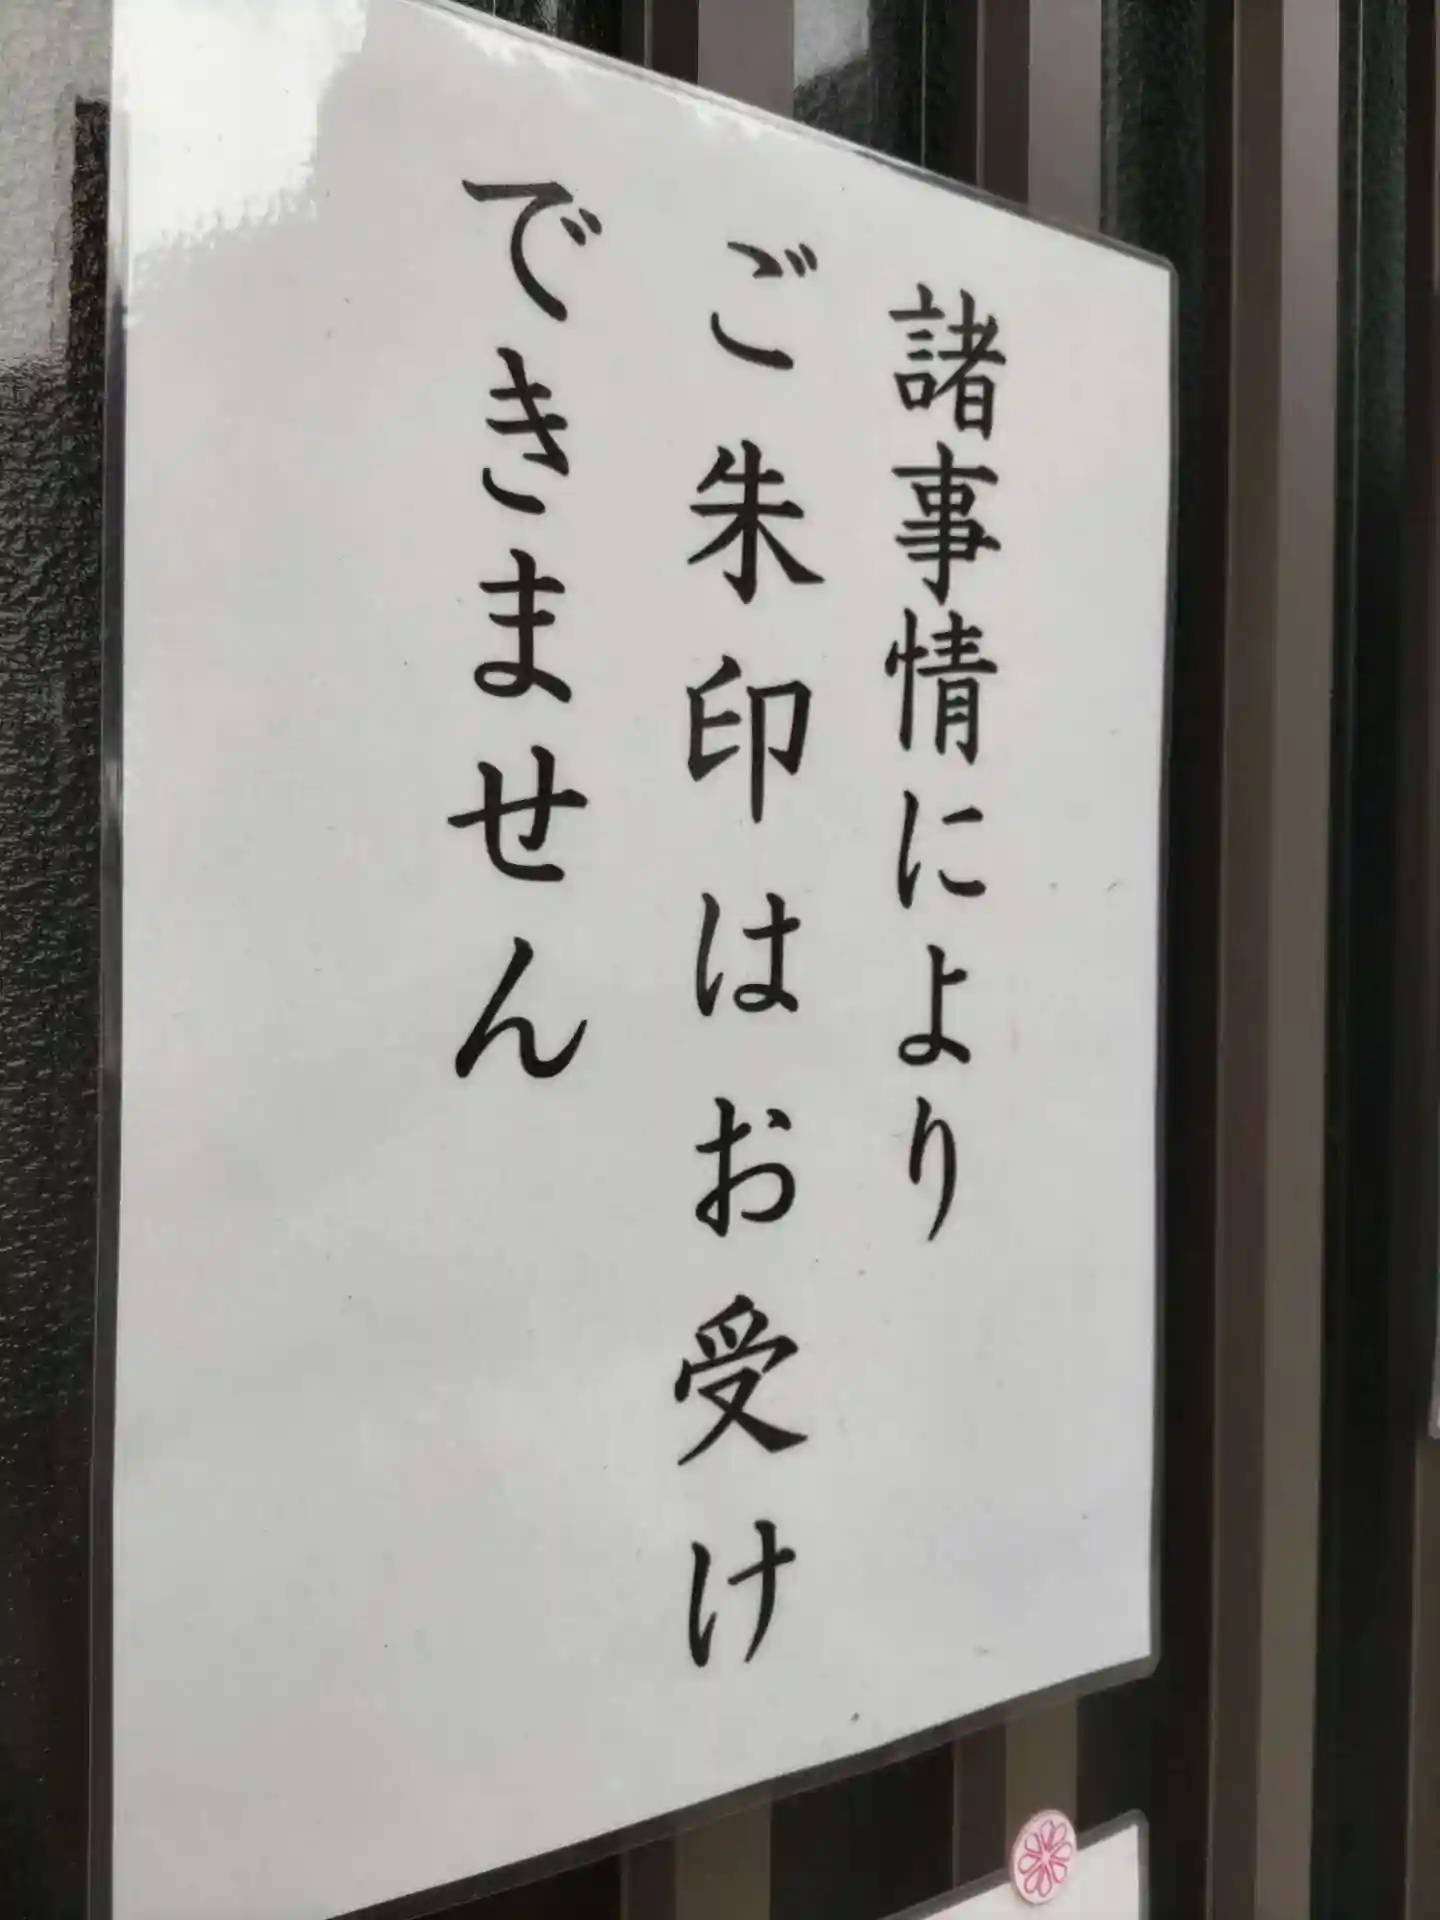 諸事情により
ご朱印はお受け
できません